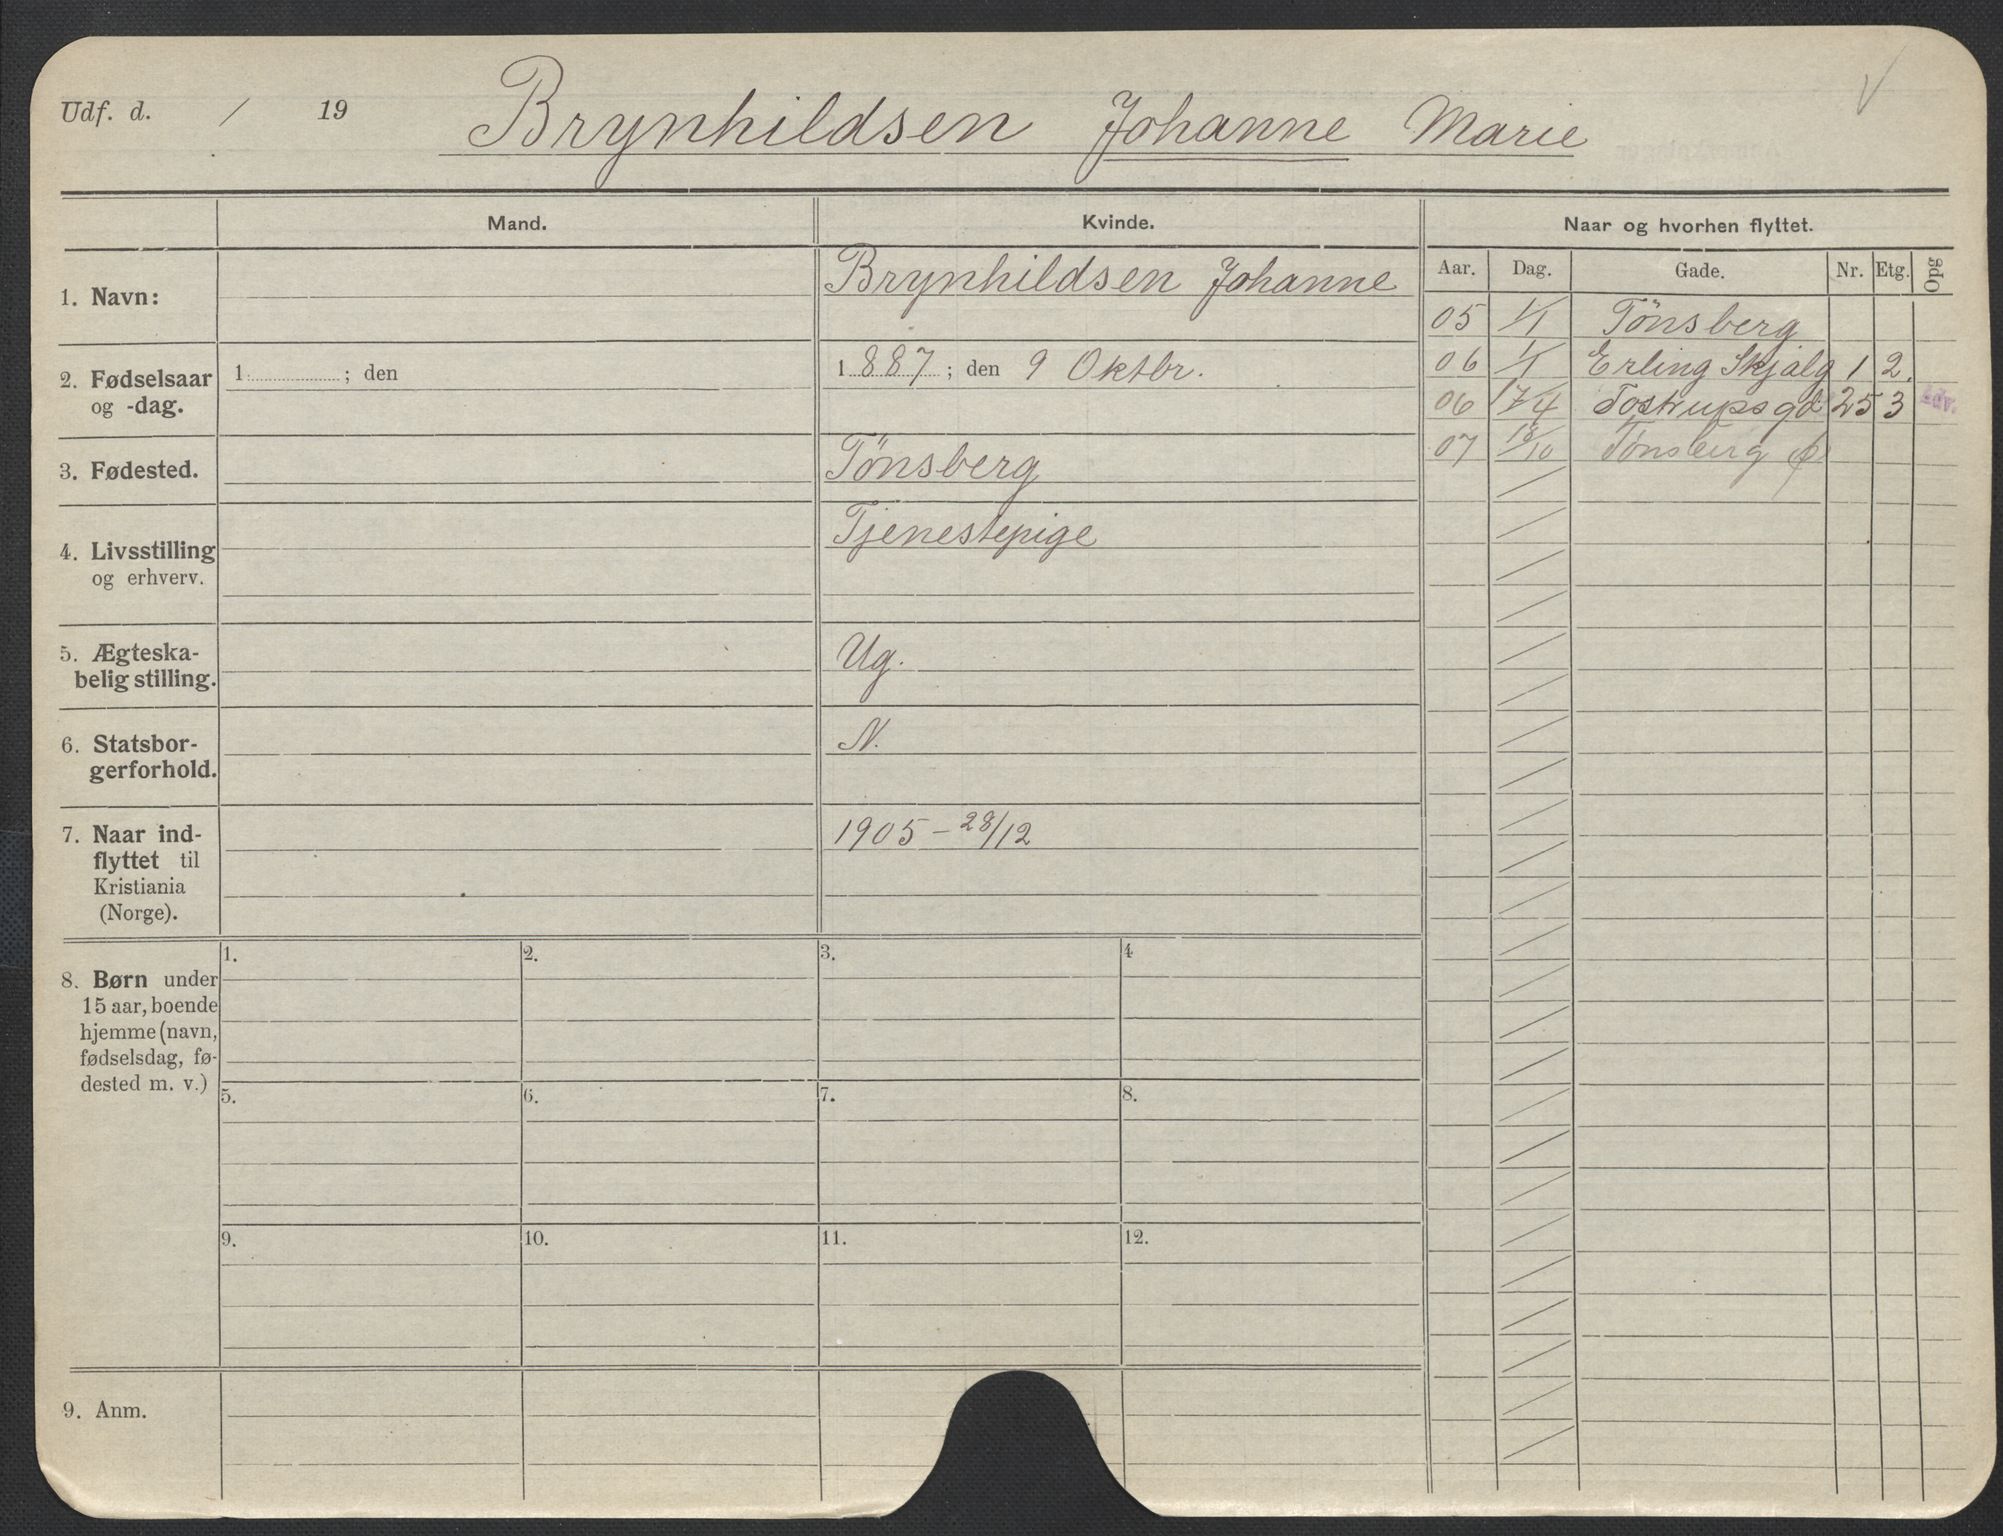 Udf. d. / 19 Brynhildsen Johanne Marie
Mand. Kvinde. Naar og hvorhen flyttet.
Aar. Dag. Gade. Nr. Etg. Opg
1. Navn: Brynhildsen Johanne
05 1/1 Tönsberg
06 1/1 Erling Skjalg 1 2.
2. Fødselsaar 1 ; den 1887 ; den 9 Oktbr.
og -dag.
06 17/4 Tostrupsgd 25 3
07 18/10 Tönsberg
3. Fødested. Tönsberg
4. Livsstilling Tjenestepige
og erhverv.
5. Ægteska- Ug.
belig stilling.
6. Statsbor- N.
gerforhold.
7. Naar ind- 1905 – 28/12
flyttet til
Kristiania
(Norge).
1. 2. 3. 4
8. Børn under
15 aar, boende
hjemme (navn,
fødselsdag, fø-
dested m. v.)
5. 6. 7. 8.
9. 10. 11. 12.
9. Anm.